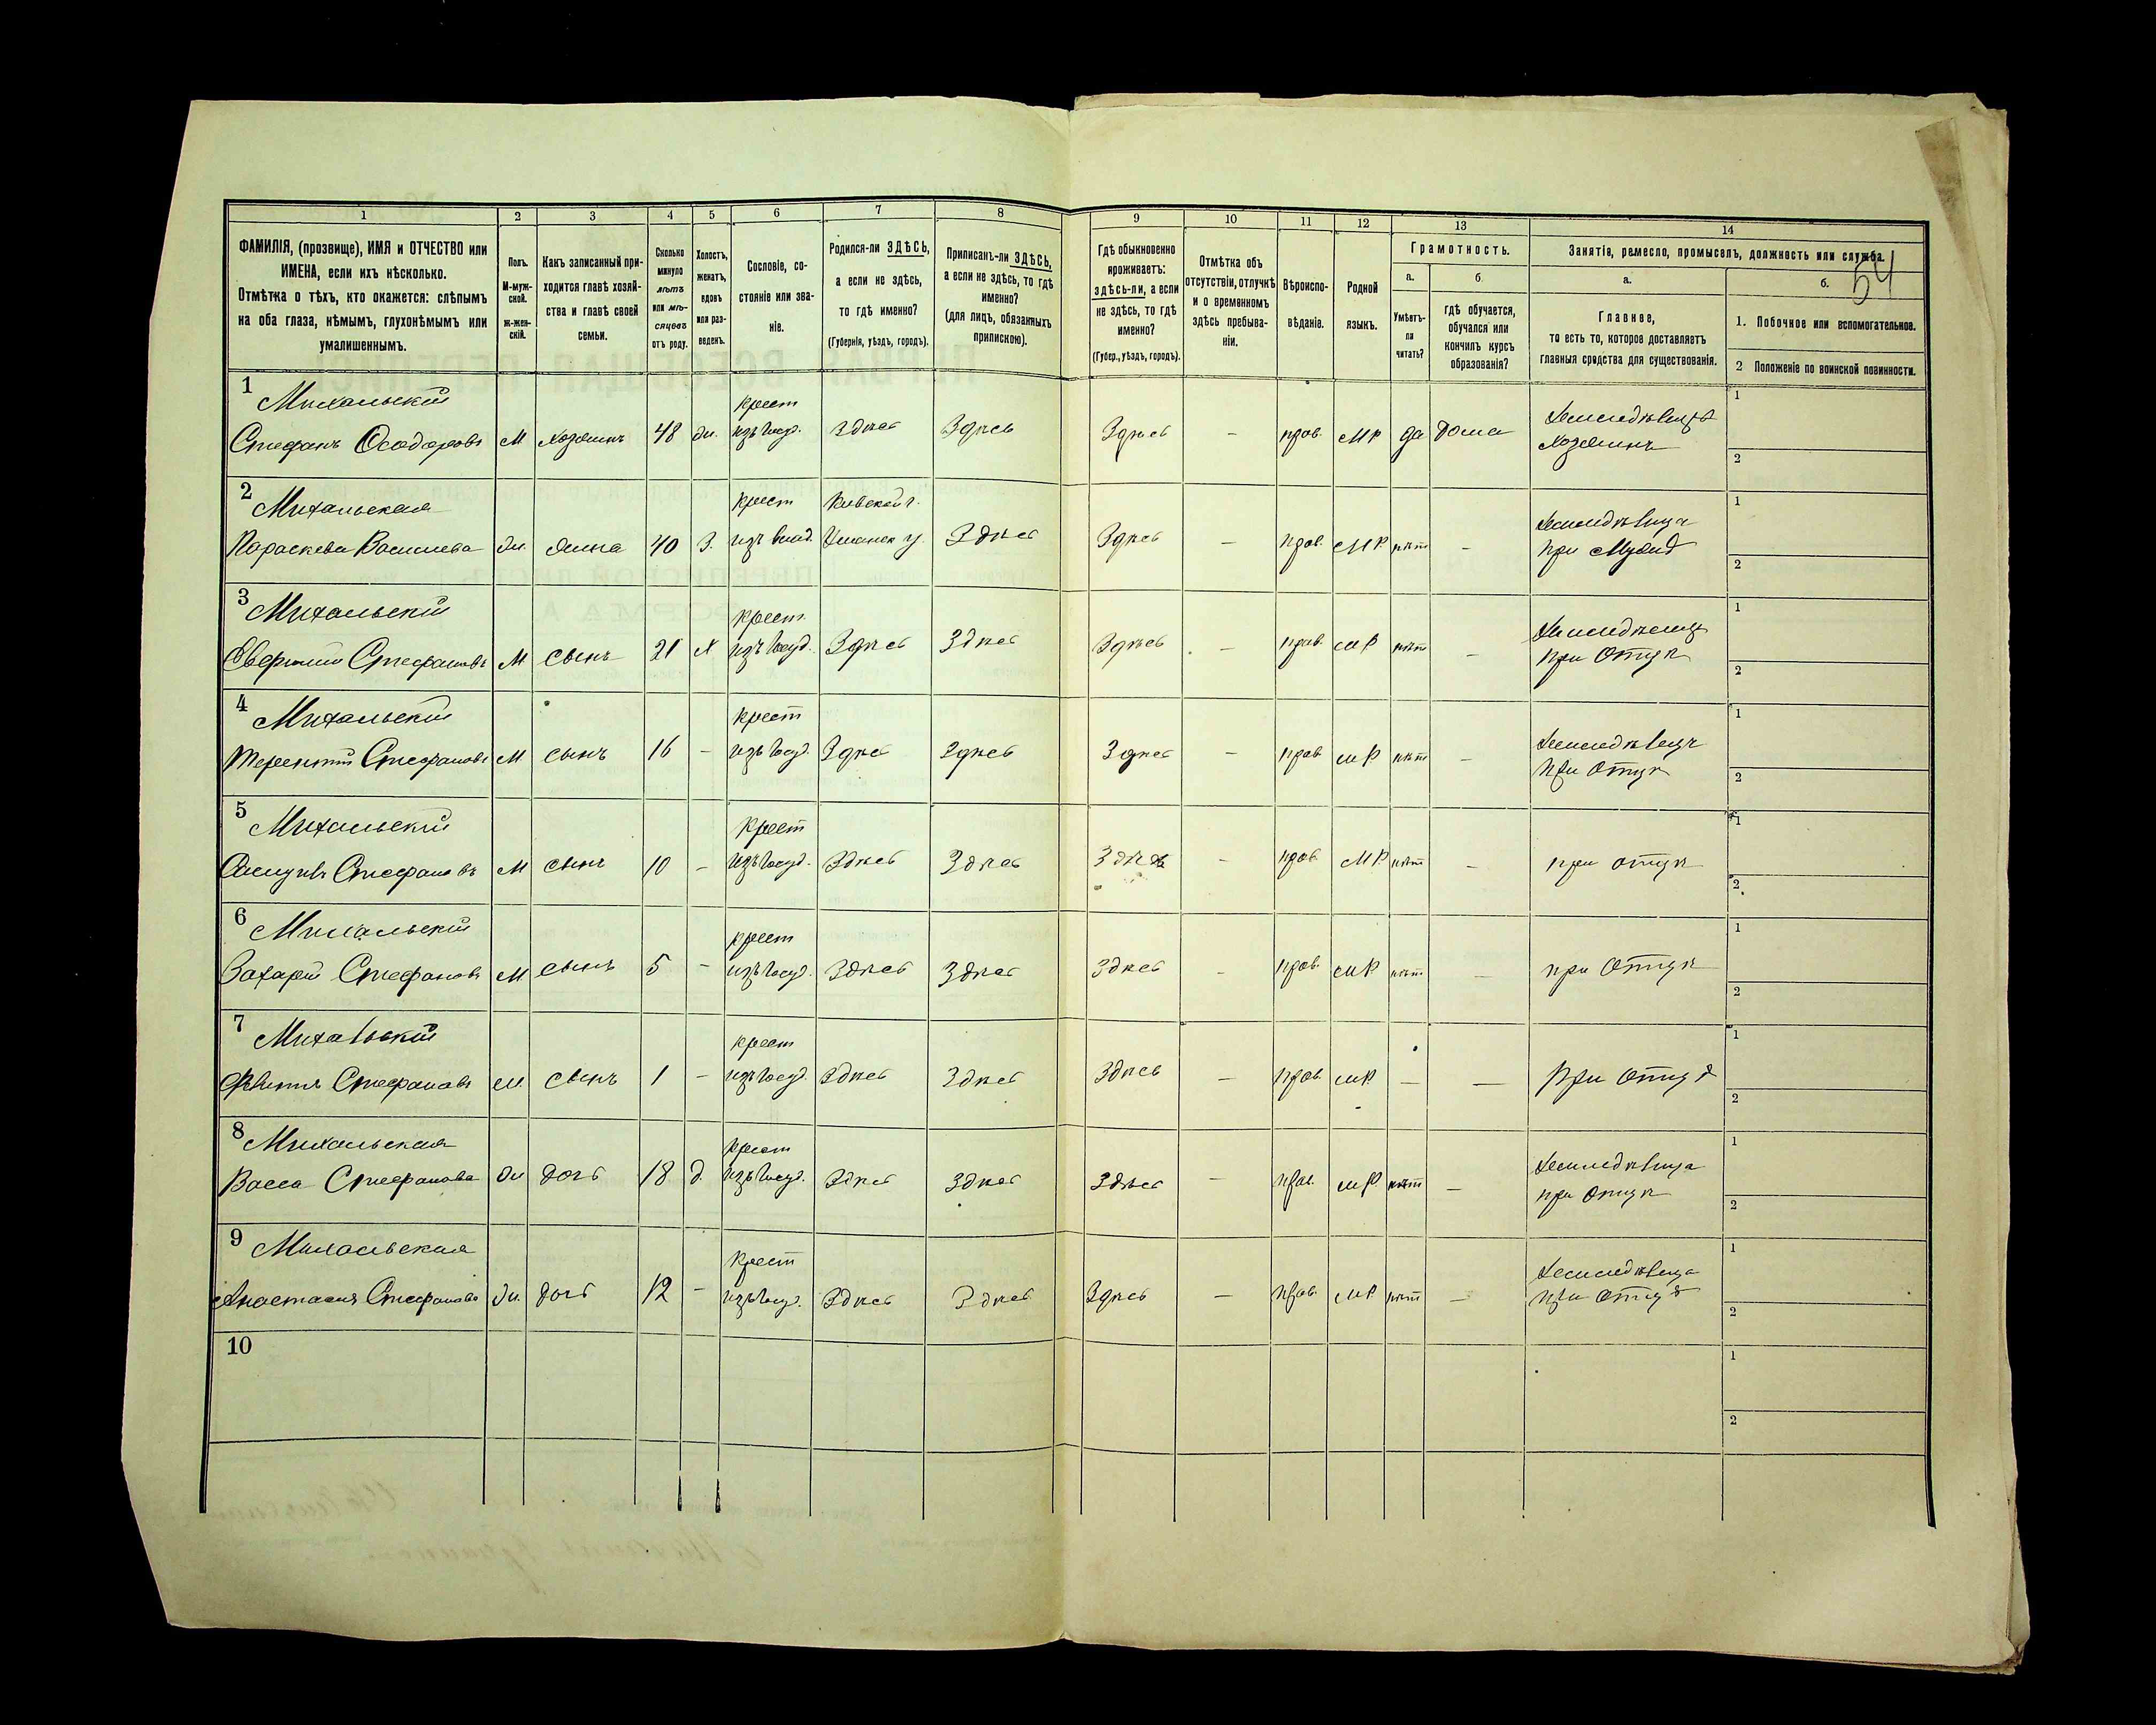 1 2 3 4 5 6 7 8 9 10 11 12 13 14
54
ФАМИЛІЯ, (прозвище), ИМЯ и ОТЧЕСТВО или
ИМЕНА, если ихъ нѣсколько.
Отмѣтка о тѣхъ, кто окажется: слѣпымъ
на оба глаза, нѣмымъ, глухонѣмымъ или
умалишеннымъ.
Полъ.
М-муж-
ской.
ж-жен-
скій.
Какъ записанный при-
ходится главѣ хозяй-
ства и главѣ своей
семьи.
Сколько
минуло
лѣтъ
или мѣ-
сяцевъ
отъ роду.
Холостъ,
женатъ,
вдовъ
или раз-
веденъ.
Сословіе, со-
стояніе или зва-
ніе.
Родился-ли ЗДѢСЬ,
а если не здѣсь,
то гдѣ именно?
(Губернія, уѣздъ, городъ).
Приписанъ-ли ЗДѢСЬ,
а если не здѣсь, то гдѣ
именно?
(для лицъ, обязанныхъ
припискою).
Гдѣ обыкновенно
проживаетъ:
здѣсь-ли, а если
не здѣсь, то гдѣ
именно?
(Губер., уѣздъ, городъ).
Отмѣтка объ
отсутствіи, отлучкѣ
и о временномъ
здѣсь пребыва-
ніи.
Вѣроиспо-
вѣданіе.
Родной
языкъ.
Грамотность.
а.
Умѣетъ-
ли
читать?
б.
гдѣ обучается,
обучался или
кончилъ курсъ
образованія?
Занятія, ремесло, промыселъ, должность или служба.
а.
Главное,
то есть то, которое доставляетъ
главныя средства для существованія.
б.
1. Побочное или вспомогательное.
2 Положеніе по воинской повинности.
1 Михальскій крест 1
Стефанъ Ѳеодоровъ М хозяинъ 48 жн. изъ госуд. Здѣсь Здѣсь Здѣсь — прав. МР да дома
хозяинъ 2
2 Михальская крест Киевской г. 1
Параскева Васильева жн. жина 40 З. Уманск у. Здѣсь Здѣсь — прав. МР. нѣт —
при Мужѣ 2
3 Михальскій крест 1
Стефановъ М сынъ 21 х изъ госуд. Здѣсь Здѣсь Здѣсь — прав. МР нѣт —
при Отцѣ 2
4 Михальскій крест 1
Терентій Стефановъ М сынъ 16 — изъ госуд. Здѣсь Здѣсь Здѣсь — прав МР нѣт —
при Отцѣ 2
5 Михальскій крест 1
Стефановъ М сынъ 10 — изъ госуд. Здѣсь Здѣсь Здѣсь — прав. МР нѣт — при отцѣ 2
6 Михальскій крест 1
Захарій Стефановъ М сынъ 5 — изъ госуд. Здѣсь Здѣсь Здѣсь — прав. МР нѣт — при Отцѣ 2
7 Михальскій крест 1
Стефановъ М. сынъ 1 — изъ госуд. Здѣсь Здѣсь Здѣсь — прав. МР — — При Отцѣ 2
8 Михальская крест 1
Васса Стефанова жн дочь 18 д. изъ госуд. Здѣсь Здѣсь Здѣсь — прав. МР нѣт —
при Отцѣ 2
9 Михальская крест 1
Анастасия Стефанова жн. дочь 12 — изъ госуд. Здѣсь Здѣсь Здѣсь — прав. МР. нѣт —
при Отцѣ 2
10 1
2